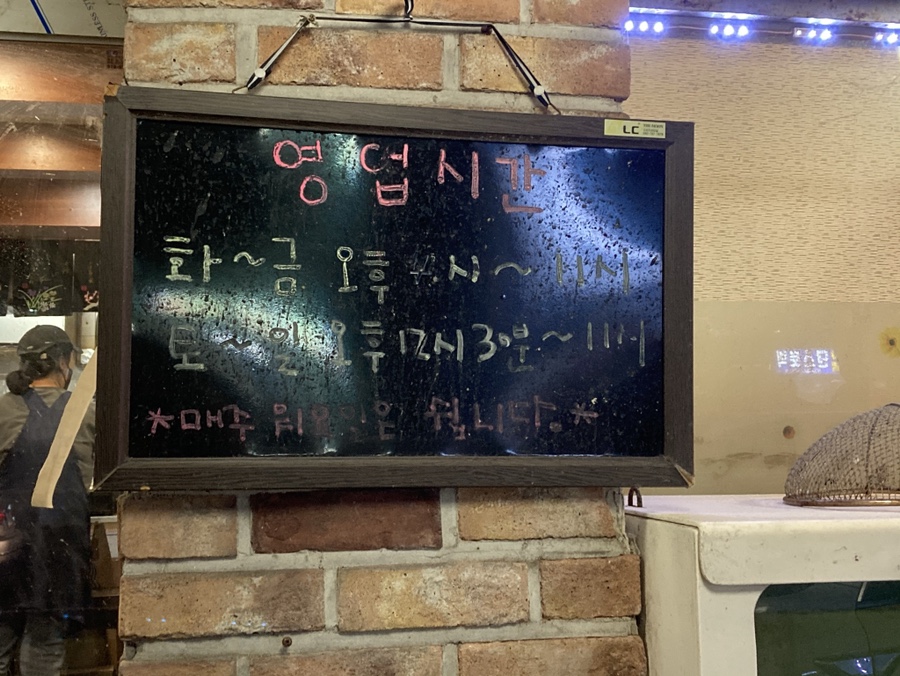 영업시간
화~금 오후 4시~11시
토~일 오후 12시 3분~11시
*매주 월요일은 쉽니다.*
LC